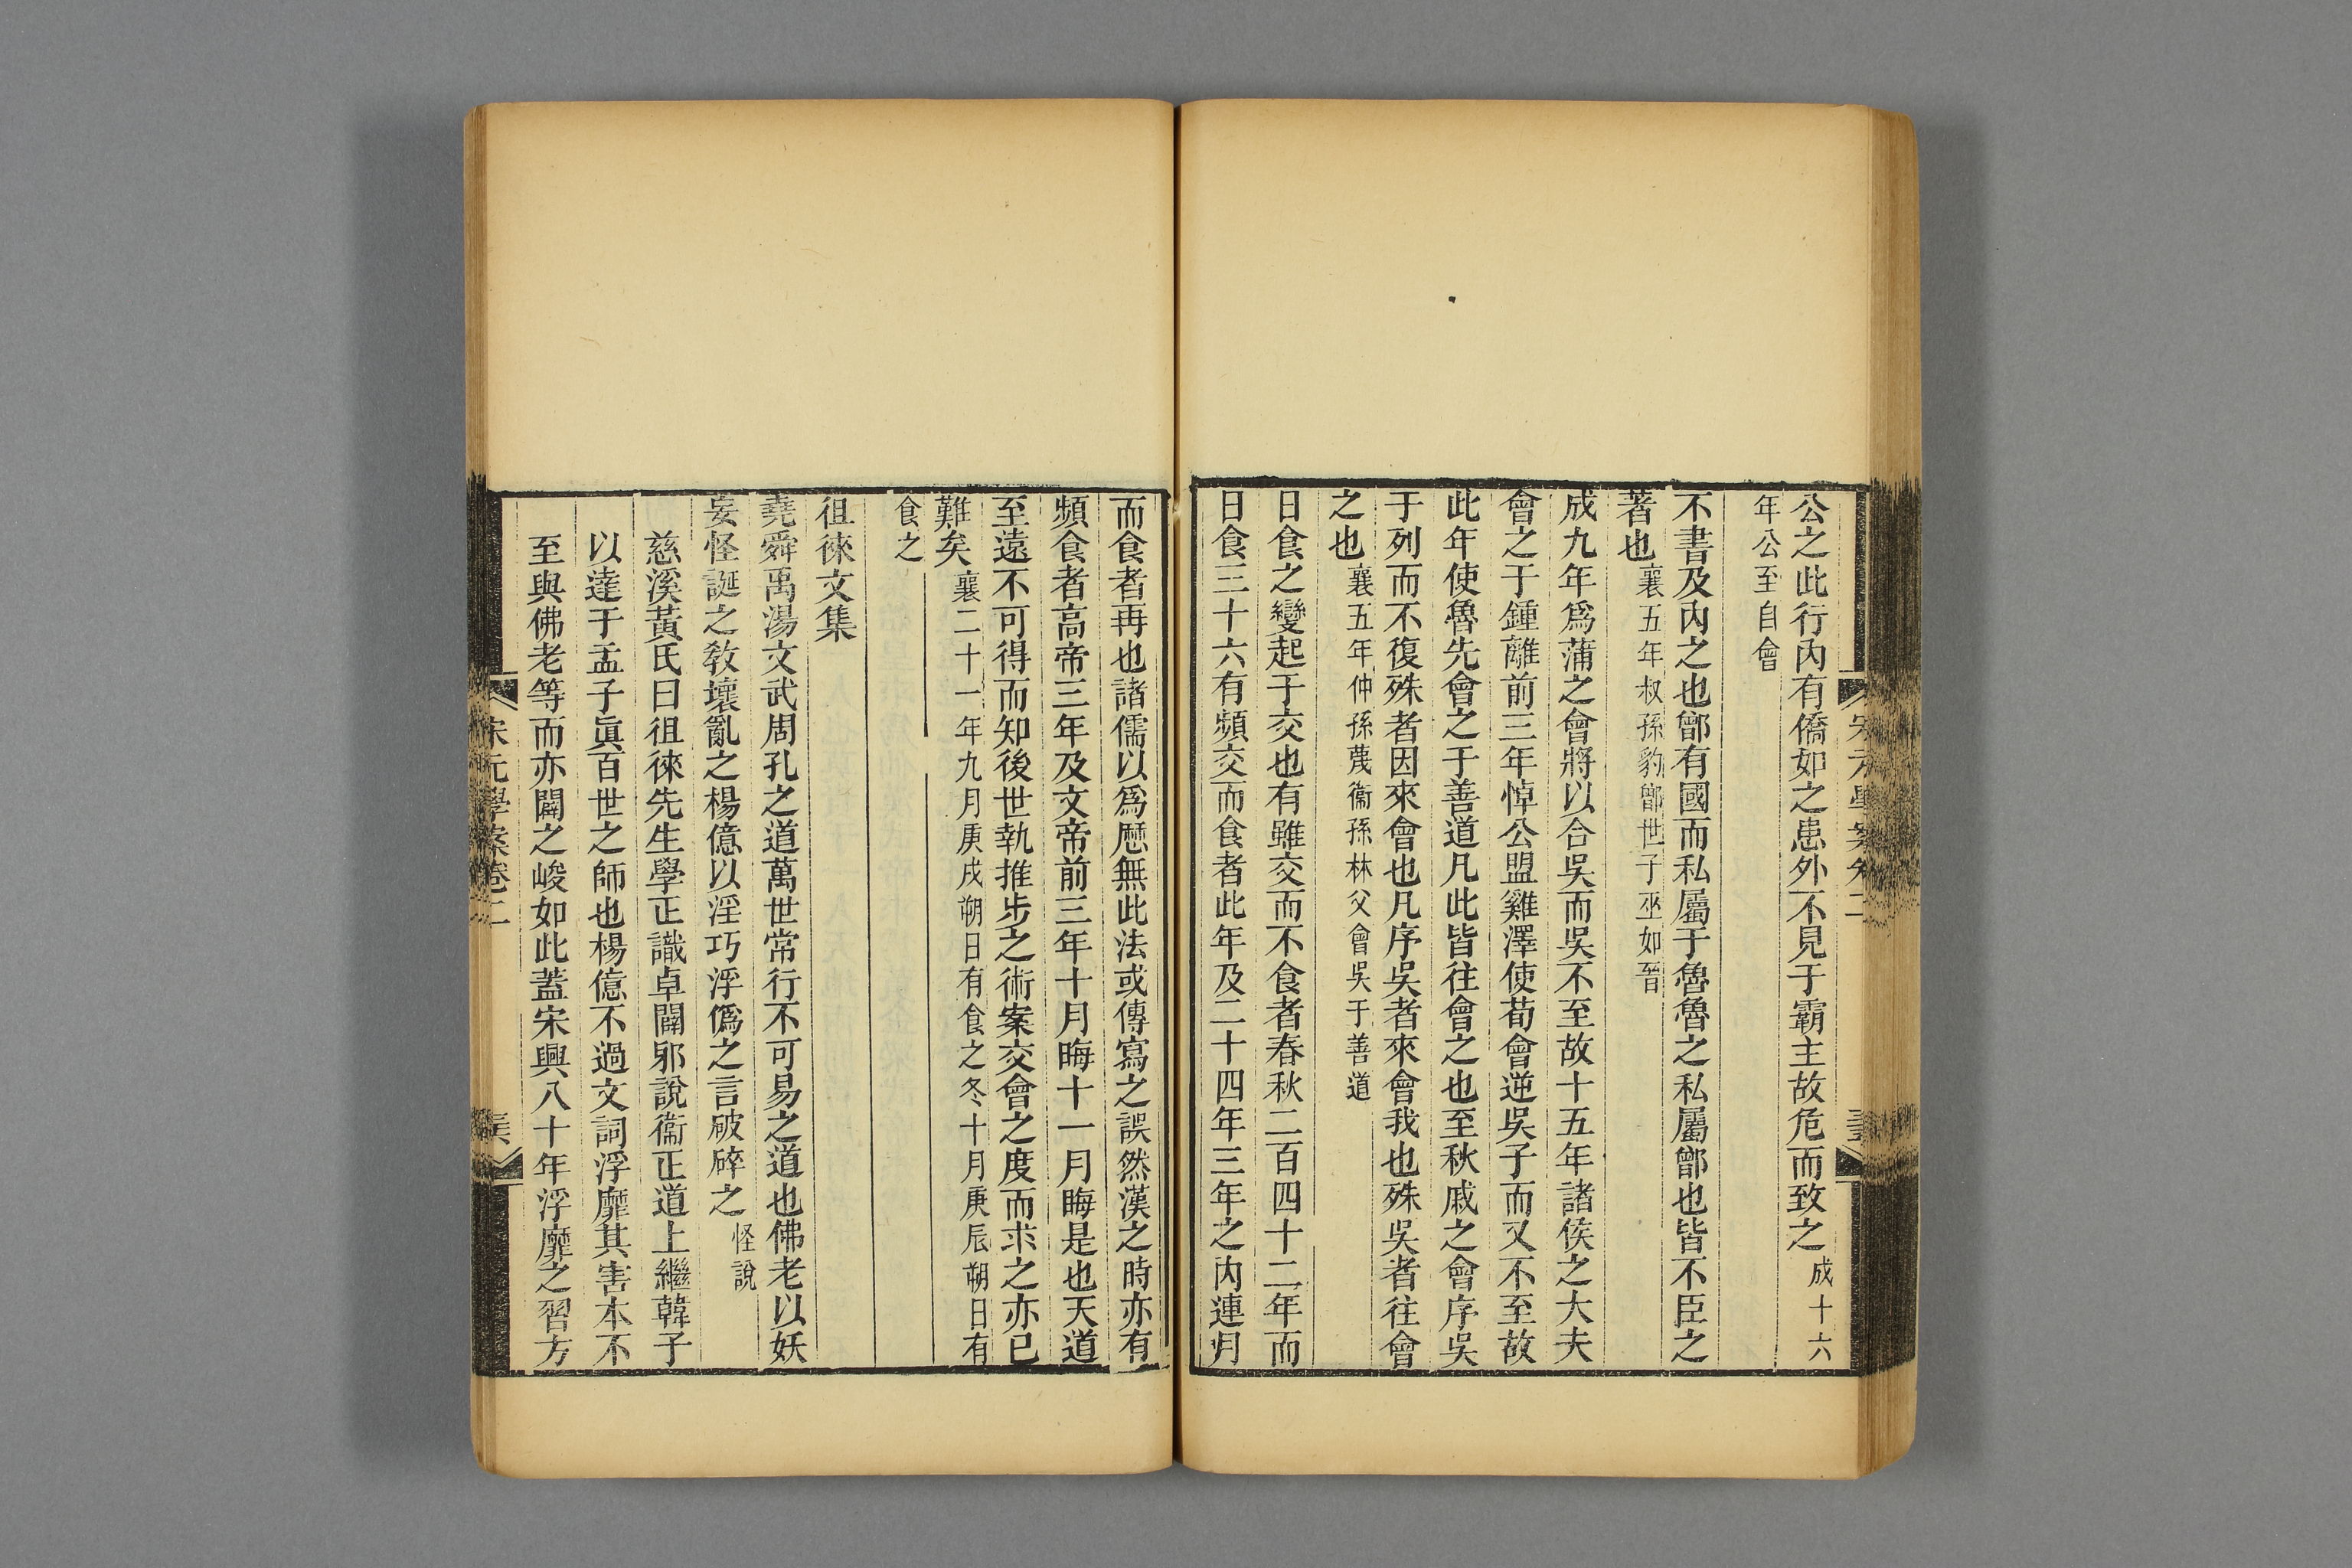 公之此行內有僑如之患外不見于霸主故危而致之成十六
年公至自會
不書及內之也鄫有國而私屬于魯魯之私屬鄫也皆不臣之
著也襄五年叔孫豹鄫世子巫如晉
成九年爲蒲之會將以合吳而吳不至故十五年諸侯之大夫
會之于鍾離前三年悼公盟雞澤使荀會逆吳子而又不至故
此年使魯先會之于善道凡此皆往會之也至秋戚之會序吳
于列而不復殊者因來會也凡序吳者來會我也殊吳者往會
之也襄五年仲孫蔑衞孫林父會吳于善道
日食之變起于交也有雖交而不食者春秋二百四十二年而
日食三十六有頻交而食者此年及二十四年三年之內連月
而食者再也諸儒以爲厯無此法或傳寫之誤然漢之時亦有
頻食者高帝三年及文帝前三年十月晦十一月晦是也天道
至遠不可得而知後世執推步之術案交會之度而求之亦已
難矣襄二十一年九月庚戌朔日有食之冬十月庚辰朔日有
食之
徂徠文集
堯舜禹湯文武周孔之道萬世常行不可易之道也佛老以妖
妄怪誕之敎壞亂之楊億以淫巧浮僞之言破碎之怪說
慈溪黃氏曰徂徠先生學正識卓闢邪說衞正道上繼韓子
以達于孟子眞百世之師也楊億不過文詞浮靡其害本不
至與佛老等而亦闢之峻如此蓋宋興八十年浮靡之習方
宋元學案卷二